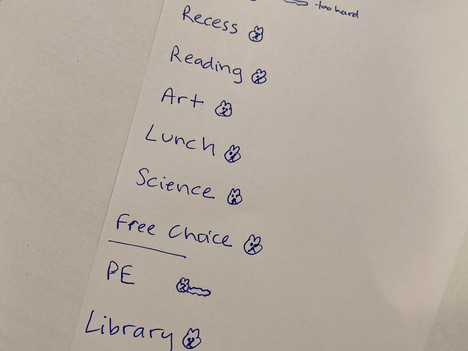 too hard
Recess
Reading
Art
Lunch
Science
Free Choice
PE
Library